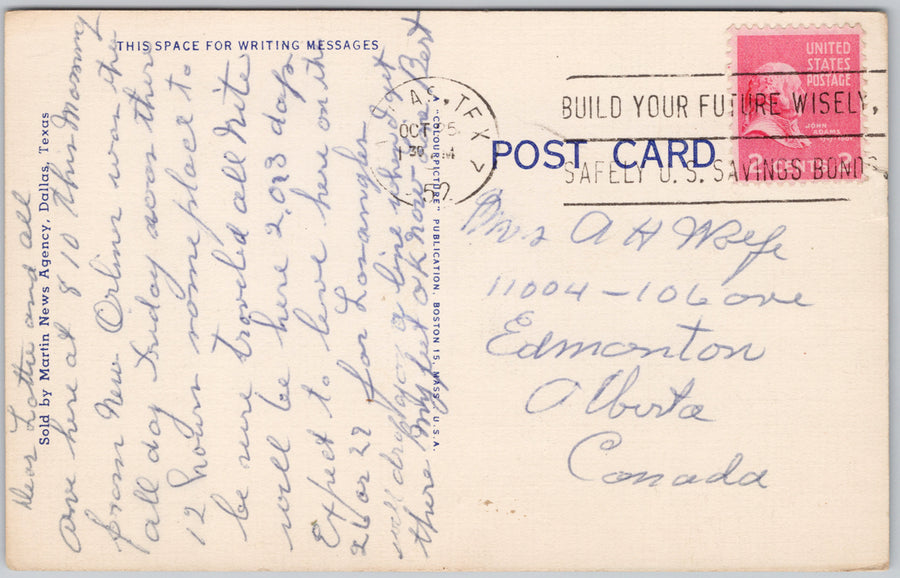 THIS SPACE FOR WRITING MESSAGES
Dear Lottie and all
Arve here at 8 10 this Morning
from New Orlines was the
all day Friday was there
12 hours nome place to
be sure traveled all Nite
will be here 2 or 3 days
Expect to leve here on the
26 or 27 for Losangles
will drop you a line when I get
there My feet OK now Bert
Sold by Martin News Agency, Dallas, Texas
A "COLOURPICTURE" PUBLICATION, BOSTON 15, MASS., U.S.A.
POST CARD
AS, TEX
OCT 25
30 M
BUILD YOUR FUTURE WISELY,
SAFELY U.S. SAVINGS BONDS
UNITED
STATES
POSTAGE
JOHN
ADAMS
2 CENTS 2
Mrs A H Wolfe
11004 - 106 ave
Edmonton
Alberta
Canada